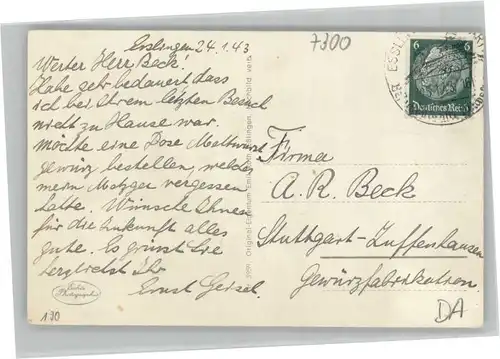 Esslingen 24.1.43
Werter Herr Beck!
Habe sehr bedauert dass
ich bei Ihrem letzten Besuch
nicht zu Hause war.
möchte eine Dose Mettwurst
gewürz bestellen, welches
mein Metzger vergessen
hatte. Wünsche Ihnen
für die Zukunft alles
gute. Es grüsst Sie
herzlichst Ihr
Ernst Geisel.
Echte
Photographie
130
7300
6 6
Deutsches Reich
ESSL
Firma
A. R. Beck
Stuttgart-Zuffenhausen
Gewürzfabrikation.
DA